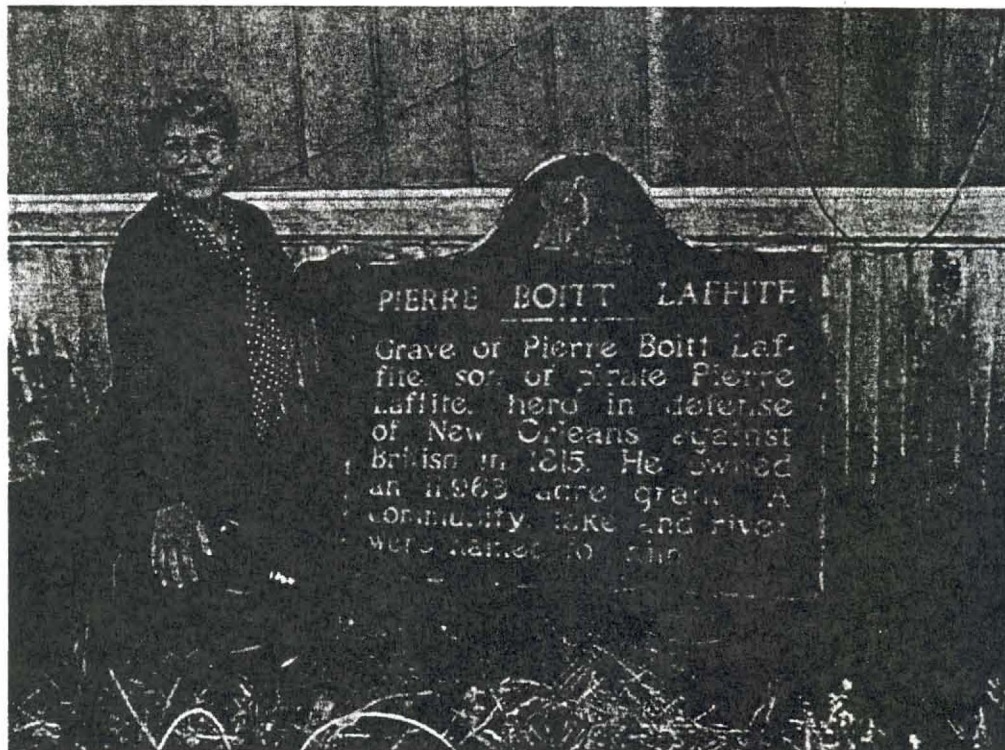 PIERRE BOITT LAFFITE
Grave of Pierre Boitt Laf-
fite, son of pirate Pierre
Laffite, hero in defense
of New Orleans against
British in 1815. He owned
an 11,963 acre grant. A
community, lake and river
were named for him